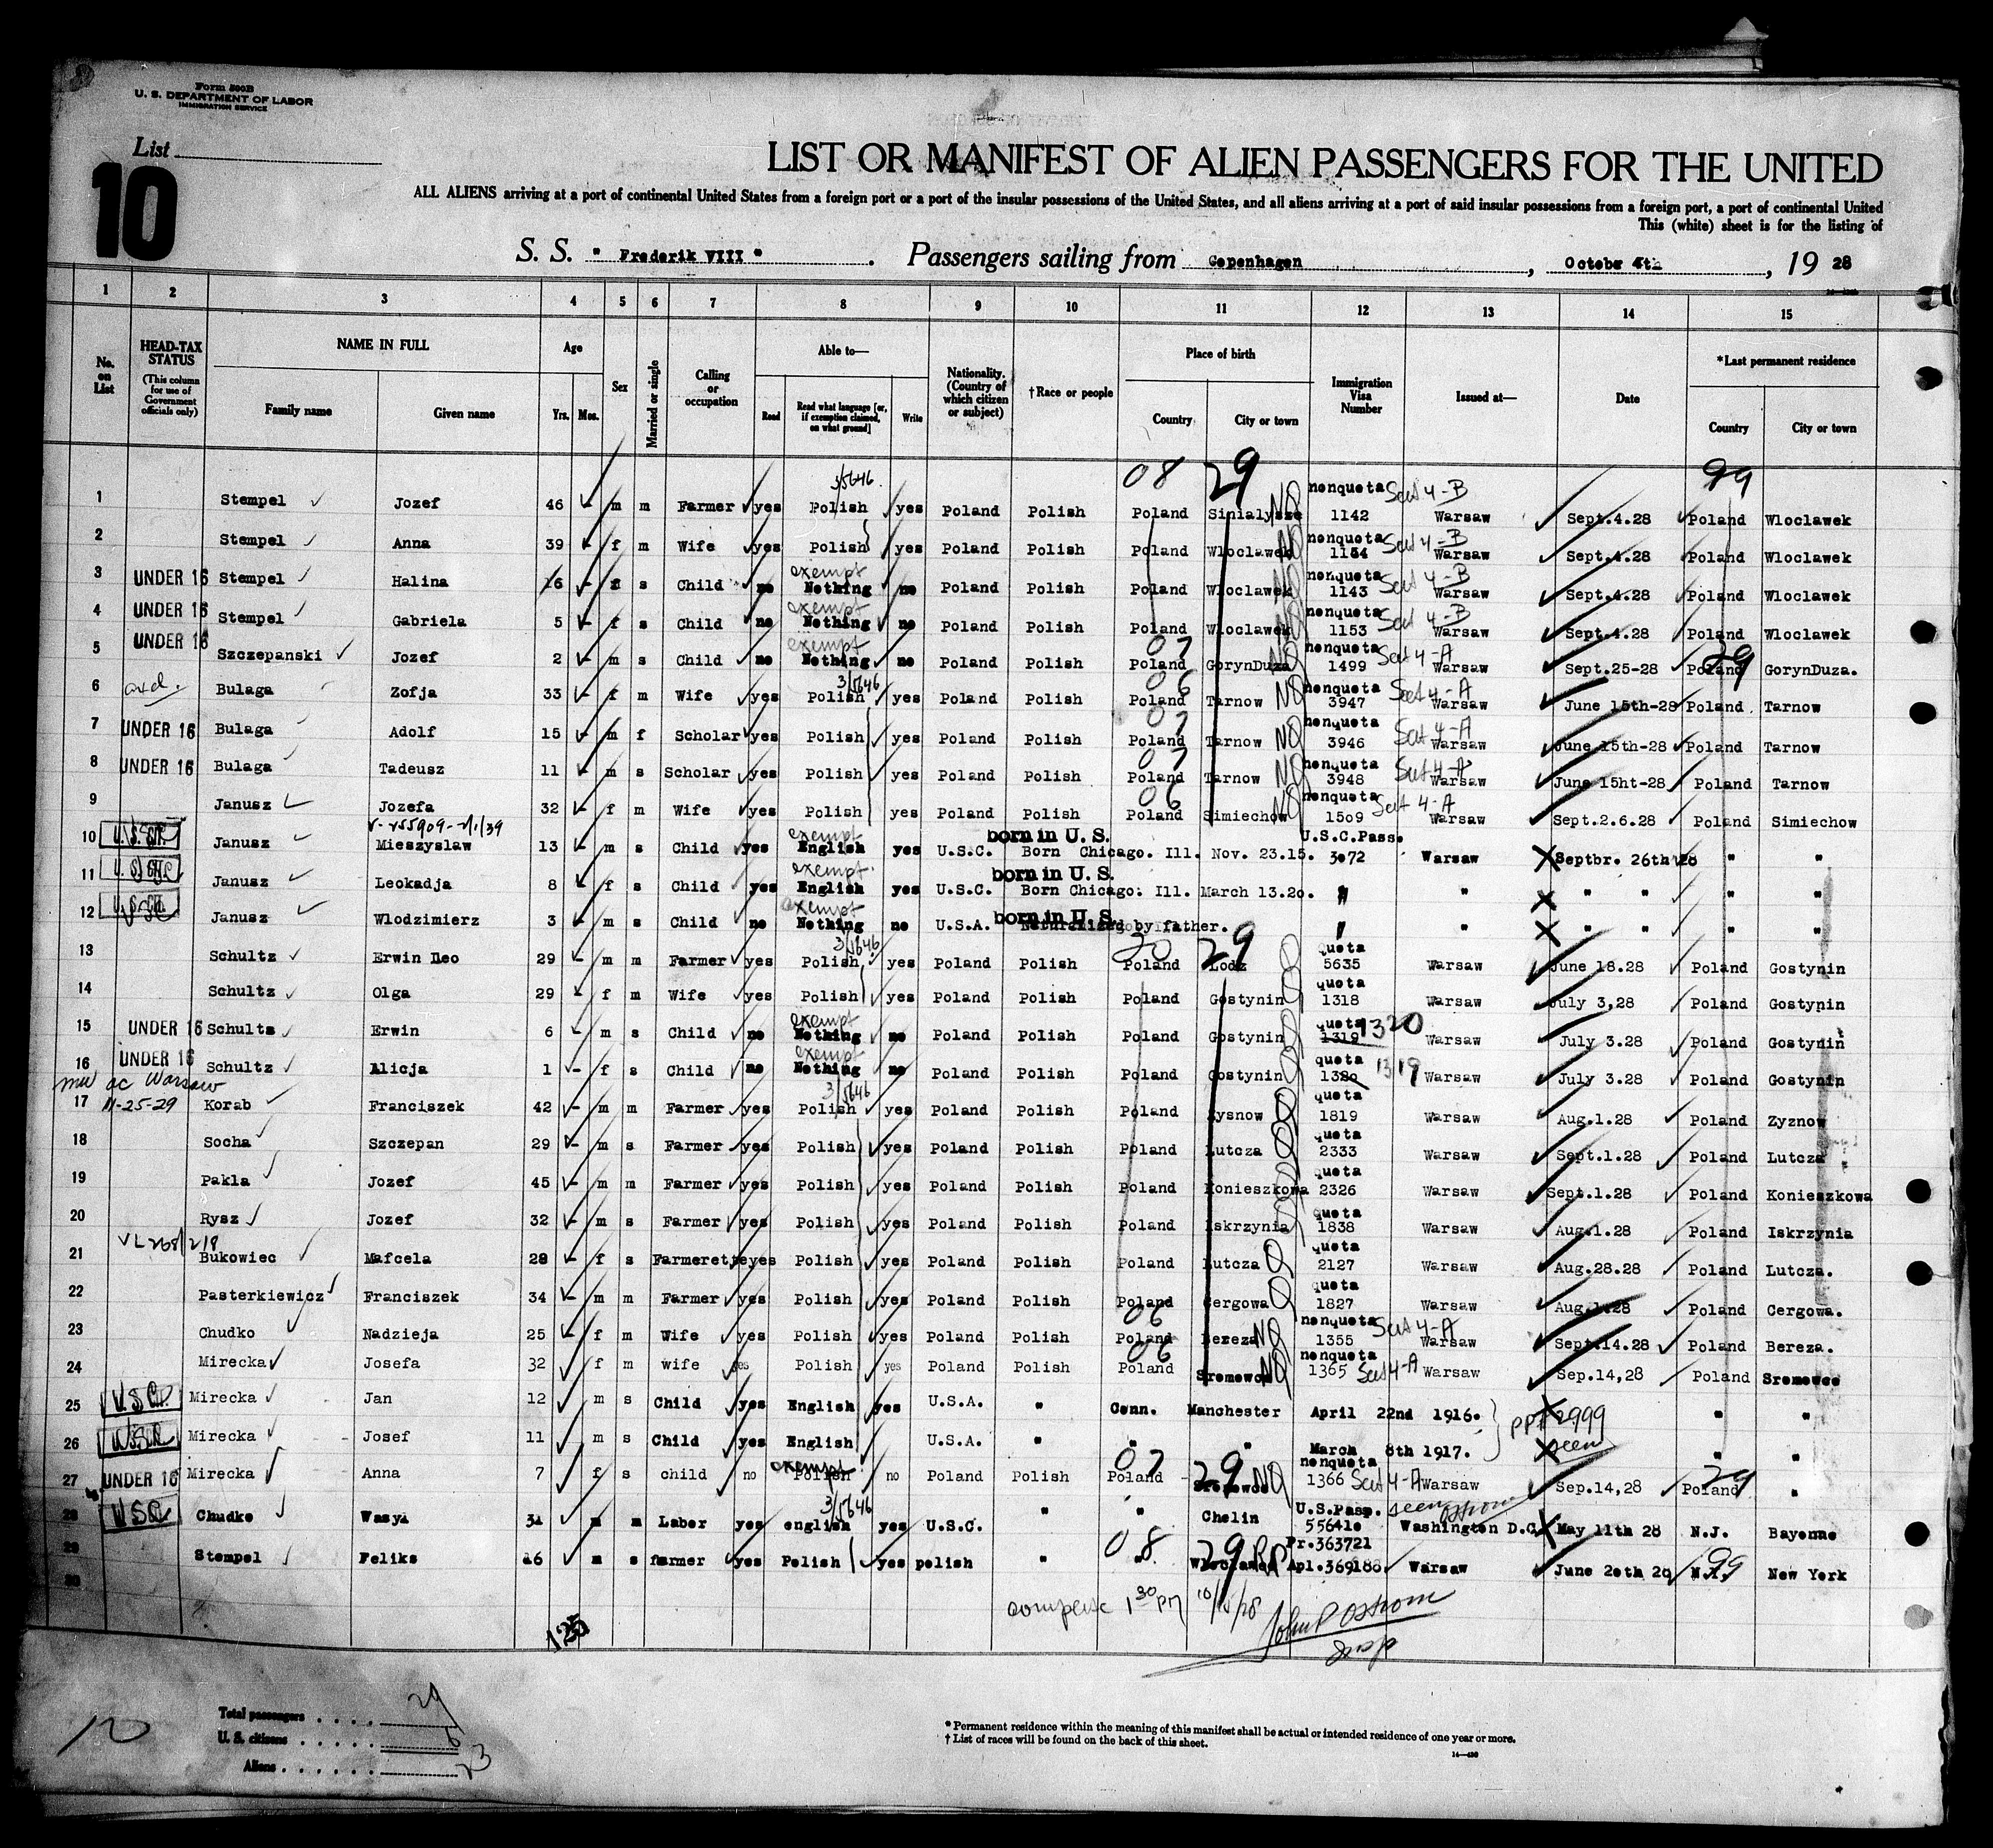 Form 500B
U. S. DEPARTMENT OF LABOR
IMMIGRATION SERVICE
List
10
LIST OR MANIFEST OF ALIEN PASSENGERS FOR THE UNITED
ALL ALIENS arriving at a port of continental United States from a foreign port or a port of the insular possessions of the United States, and all aliens arriving at a port of said insular possessions from a foreign port, a port of continental United
This (white) sheet is for the listing of
S. S. " Frederik VIII " . Passengers sailing from Copenhagen , Octobr 4th , 19 28
1 2 3 4 5 6 7 8 9 10 11 12 13 14 15
No. on List HEAD-TAX STATUS (This column for use of Government officials only) NAME IN FULL Family name Given name Age Yrs. Mos. Sex Married or single Calling or occupation Able to— Read Read what language [or, if exemption claimed, on what ground] Write Nationality. (Country of which citizen or subject) †Race or people Place of birth Country City or town Immigration Visa Number Issued at— Date *Last permanent residence Country City or town
08 29 99
3/5646
1 Stempel Jozef 46 m m Farmer yes Polish yes Poland Polish Poland NQ nonquota 1142 Sect 4-B Warsaw Sept.4.28 Poland Wloclawek
2 Stempel Anna 39 f m Wife yes Polish yes Poland Polish Poland Wloclawek NQ nonquota 1154 Sect 4-B Warsaw Sept.4.28 Poland Wloclawek
3 UNDER 16 Stempel Halina 16 f s Child no exempt Nothing no Poland Polish Poland Wloclawek NQ nonquota 1143 Sect 4-B Warsaw Sept.4.28 Poland Wloclawek
4 UNDER 16 Stempel Gabriela 5 f s Child no exempt Nothing no Poland Polish Poland Wloclawek NQ nonquota 1153 Sect 4-B Warsaw Sept.4.28 Poland Wloclawek
5 UNDER 16 Szczepanski Jozef 2 m s Child no exempt Nothing no Poland Polish 07 Poland GorynDuza NQ nonquota 1499 Sect 4-A Warsaw Sept.25-28 Poland 29 GorynDuza.
6 Bulaga Zofja 33 f m Wife yes 3/5646 Polish yes Poland Polish 06 Poland Tarnow NQ nonquota 3947 Sect 4-A Warsaw June 15th-28 Poland Tarnow
7 UNDER 16 Bulaga Adolf 15 m f Scholar yes Polish yes Poland Polish 07 Poland Tarnow NQ nonquota 3946 Sect 4-A Warsaw June 15th-28 Poland Tarnow
8 UNDER 16 Bulaga Tadeusz 11 m s Scholar yes Polish yes Poland Polish 07 Poland Tarnow NQ nonquota 3948 Sect 4-A Warsaw June 15ht-28 Poland Tarnow
9 Janusz Jozefa 32 f m Wife yes Polish yes Poland Polish 06 Poland Simiechow NQ nonquota 1509 Sect 4-A Warsaw Sept.2.6.28 Poland Simiechow
10 U. S. CIT. Janusz Mieszyslaw 13 m s Child yes exempt English yes U.S.C. born in U. S. Born Chicago. Ill. Nov. 23.15. U.S.C.Pass. 3072 Warsaw X Septbr. 26th 28 " "
11 U. S. CIT. Janusz Leokadja 8 f s Child yes exempt English yes U.S.C. born in U. S. Born Chicago: Ill. March 13.20. " " X " " " "
12 U. S. CIT. Janusz Wlodzimierz 3 m s Child no exempt Nothing no U.S.A. born in U. S. Naturalized by father. " " X " " " "
13 Schultz Erwin Leo 29 m m Farmer yes 3/5646 Polish yes Poland Polish 30 Poland 29 Lodz Q quota 5635 Warsaw June 18.28 Poland Gostynin
14 Schultz Olga 29 f m Wife yes Polish yes Poland Polish Poland Gostynin Q quota 1318 Warsaw July 3,28 Poland Gostynin
15 UNDER 16 Schultz Erwin 6 m s Child no exempt Nothing no Poland Polish Poland Gostynin Q quota 1319 1320 Warsaw July 3.28 Poland Gostynin
16 UNDER 16 Schultz Alicja 1 f s Child no exempt Nothing no Poland Polish Poland Gostynin Q quota 1320 1319 Warsaw July 3.28 Poland Gostynin
ac Warsaw 11-25-29
17 Korab Franciszek 42 m m Farmer yes 3/5646 Polish yes Poland Polish Poland Zysnow Q quota 1819 Warsaw Aug.1.28 Poland Zyznow
18 Socha Szczepan 29 m s Farmer yes Polish yes Poland Polish Poland Lutcza Q quota 2333 Warsaw Sept.1.28 Poland Lutcza
19 Pakla Jozef 45 m m Farmer yes Polish yes Poland Polish Poland Konieszkowa quota 2326 Warsaw Sept.1.28 Poland Konieszkowa
20 Rysz Jozef 32 m s Farmer yes Polish yes Poland Polish Poland Iskrzynia quota 1838 Warsaw Aug.1.28 Poland Iskrzynia
21 Bukowiec Mafcela 28 f s Farmerette yes Polish yes Poland Polish Poland Lutcza Q quota 2127 Warsaw Aug.28.28 Poland Lutcza.
22 Pasterkiewicz Franciszek 34 m m Farmer yes Polish yes Poland Polish Poland Cergowa Q quota 1827 Warsaw Aug.1.28 Poland Cergowa.
23 Chudko Nadzieja 25 f m Wife yes Polish yes Poland Polish 06 Poland Bereza NQ nonquota 1355 Sect 4-A Warsaw Sept.14.28 Poland Bereza.
24 Mirecka Josefa 32 f m wife yes Polish yes Poland Polish 06 Poland Sromowce NQ nonquota 1365 Sect 4-A Warsaw Sep.14,28 Poland Sromowce
25 Mirecka Jan 12 m s Child yes English yes U.S.A. " Conn. Manchester April 22nd 1916. X PPT 2999 " "
26 Mirecka Josef 11 m s Child yes English U.S.A. " " " March 8th 1917. X seen " "
27 UNDER 16 Mirecka Anna 7 f s child no exempt Polish no Poland Polish 07 Poland 29 NQ nonquota 1366 Sect 4-A Warsaw Sep.14,28 Poland 29 "
28 USC Chudko Wasyl 31 m m Labor yes 3/5646 english yes U.S.C. " " Chelin U.S.Pasp. 556410 seen Ostrom Washington D.C. X May 11th 28 N.J. Bayonne
29 Stempel Feliks 16 m s farmer yes Polish yes polish " 08 " 29 RP Pr.363721 Apl.369188 Warsaw June 20th 28 99 New York
30
complete 1 30 PM 10/15/28 John P Ostrom Insp
125
Total passengers . . . . 29
U. S. citizens . . . . . 6
Aliens . . . . . . 23
10
* Permanent residence within the meaning of this manifest shall be actual or intended residence of one year or more.
† List of races will be found on the back of this sheet.